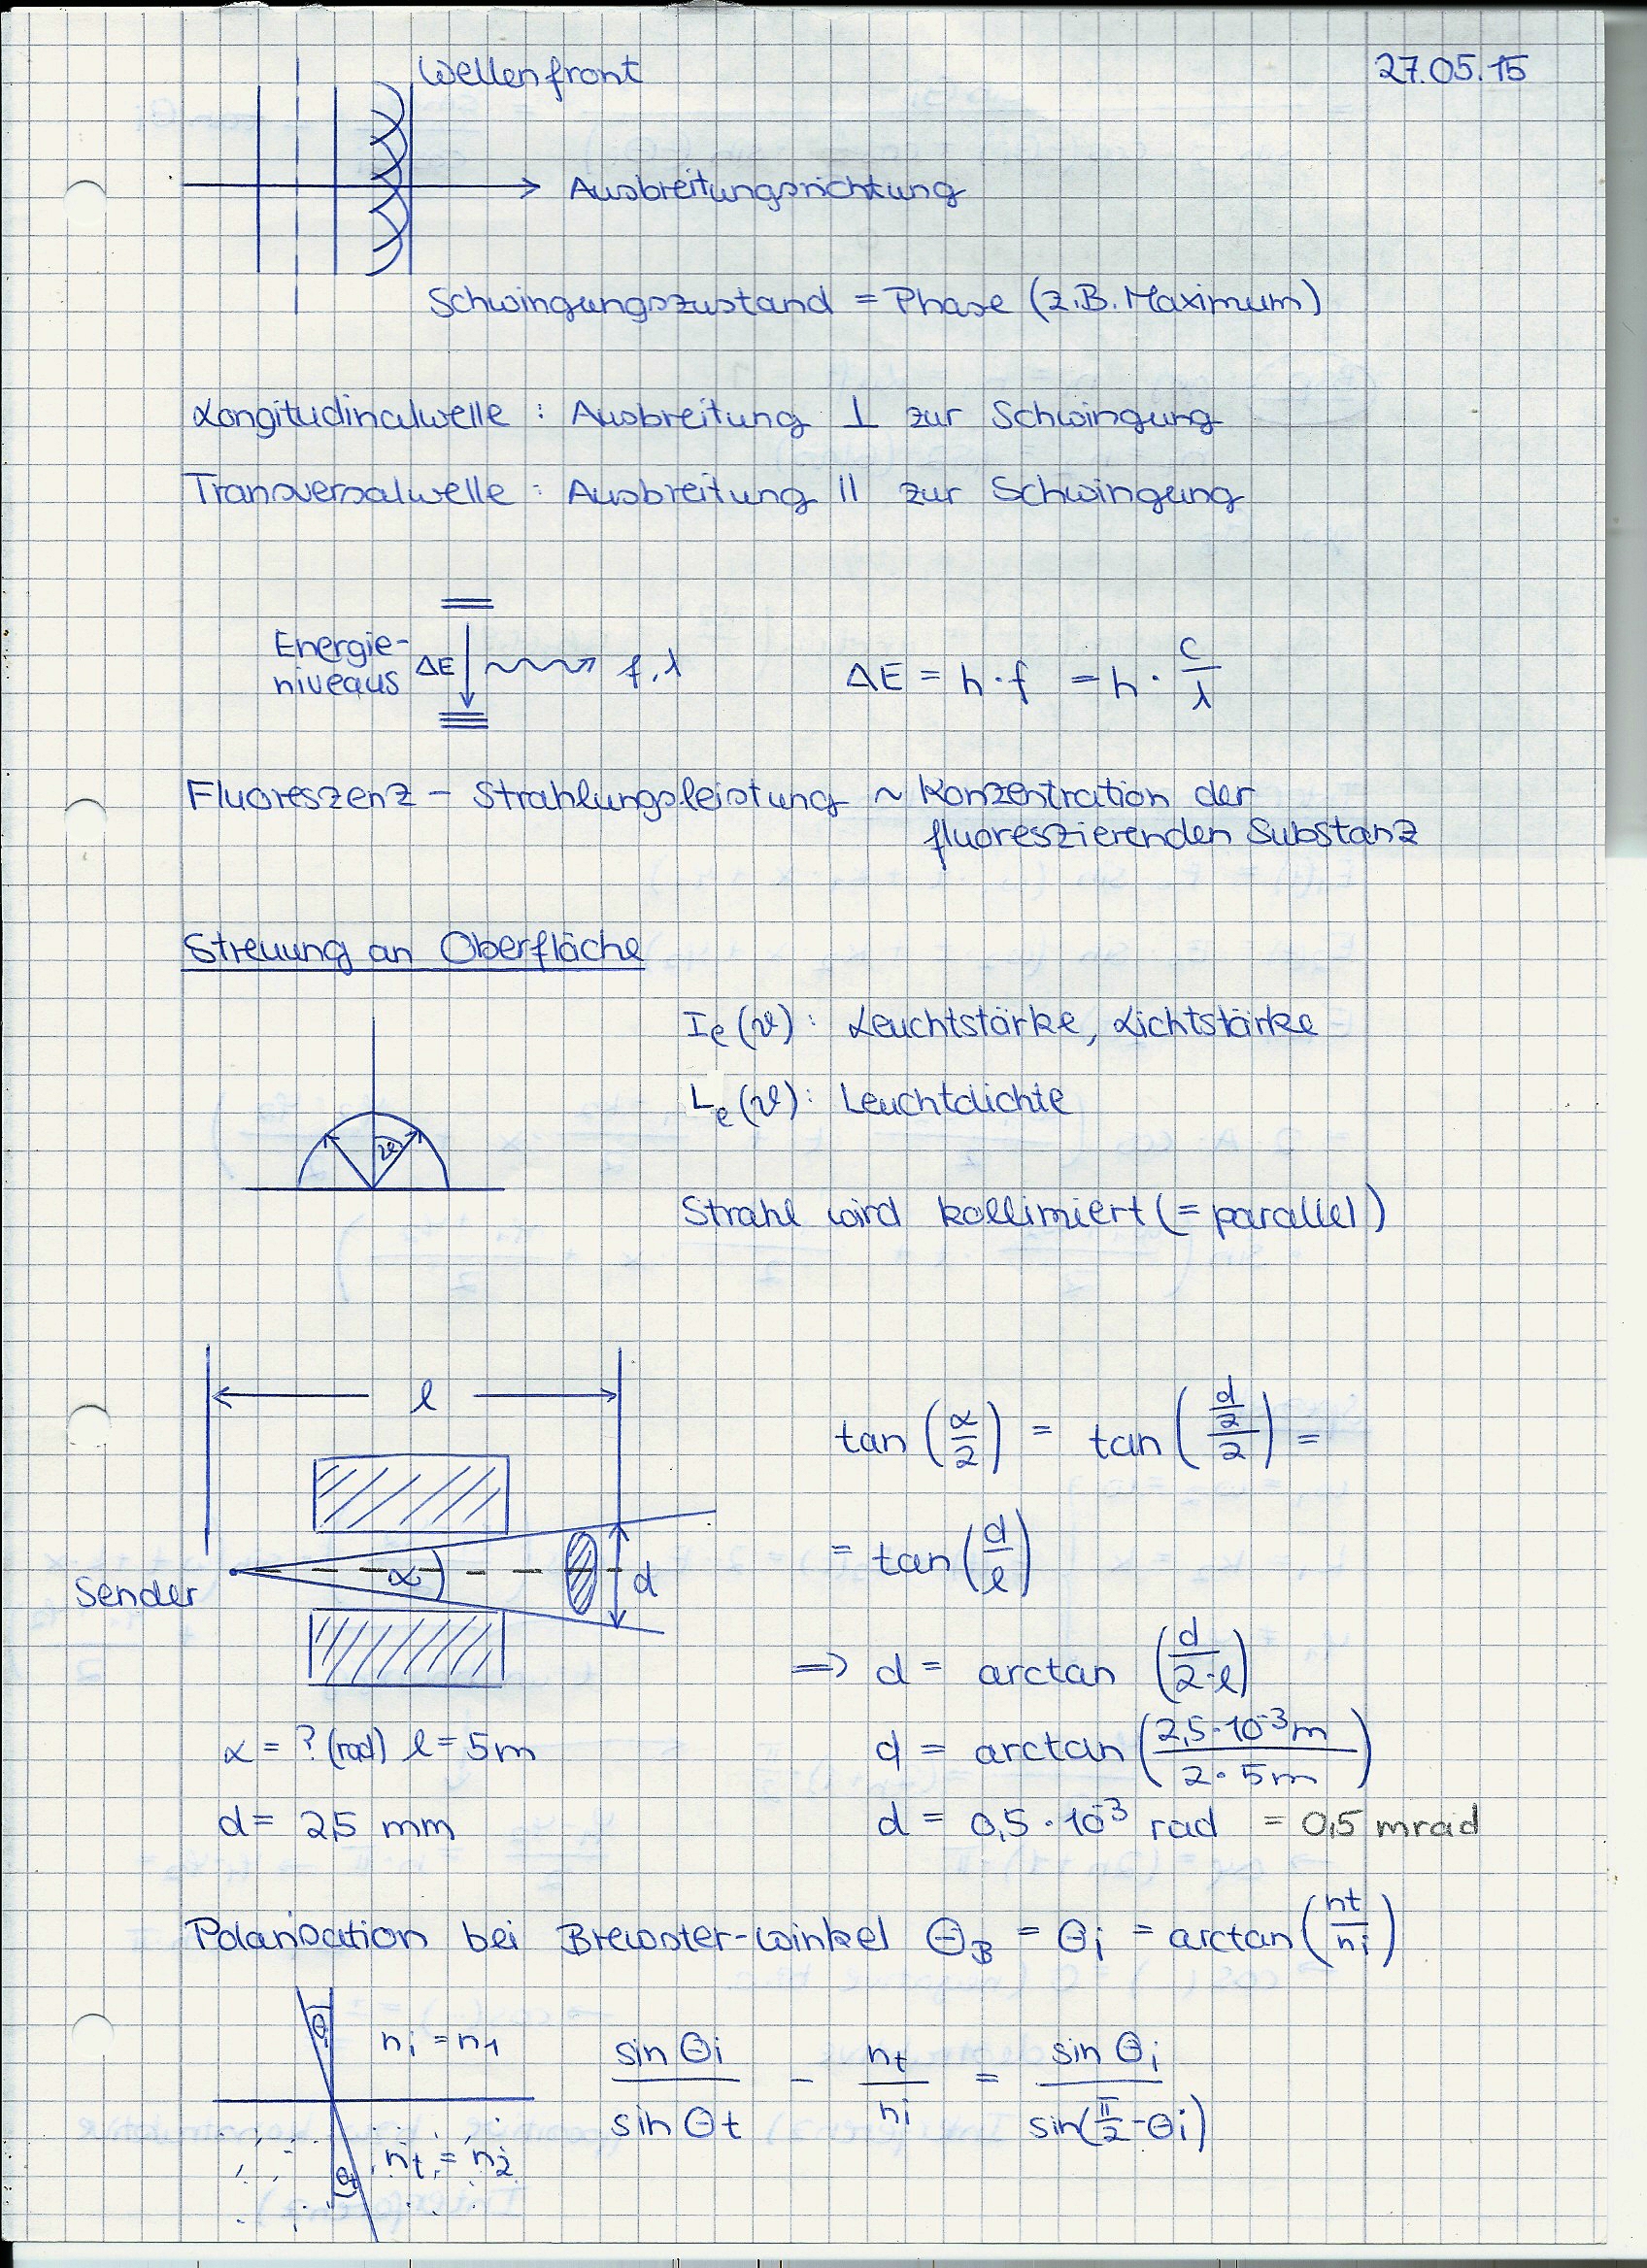 Wellenfront
27.05.15
Ausbreitungsrichtung
Schwingungszustand = Phase (z.B. Maximum)
Longitudinalwelle : Ausbreitung ⊥ zur Schwingung
Transversalwelle : Ausbreitung || zur Schwingung
Energie-
niveaus ΔE f, λ
ΔE = h · f = h · c/λ
Fluoreszenz - Strahlungsleistung ~ Konzentration der
fluoreszierenden Substanz
Streuung an Oberfläche
Ie(ϑ): Leuchtstärke, Lichtstärke
Le(ϑ): Leuchtdichte
ϑ
Strahl wird kollimiert (= parallel)
l
tan (α/2) = tan ((d/2)/2) =
= tan (d/l)
Sender α d
⇒ d = arctan (d/(2·l))
α = ? (rad) l = 5m
d = arctan (2,5·10^-3 m / (2·5m))
d = 2,5 mm
d = 0,5·10^-3 rad = 0,5 mrad
Polarisation bei Brewster-Winkel ΘB = Θi = arctan (nt/ni)
Θi ni = n1
sin Θi / sin Θt - nt/ni = sin Θi / sin(π/2 - Θi)
Θt nt = n2